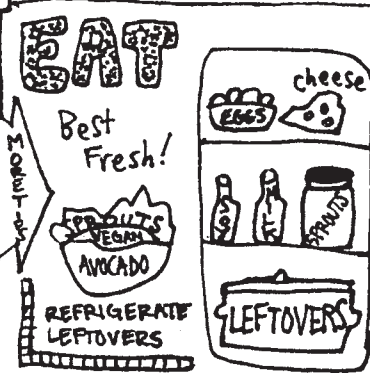 EAT
Best
Fresh!
SPROUTS
VEGAN
AVOCADO
REFRIGERATE
LEFTOVERS
cheese
EGGS
MILK
SPROUTS
LEFTOVERS